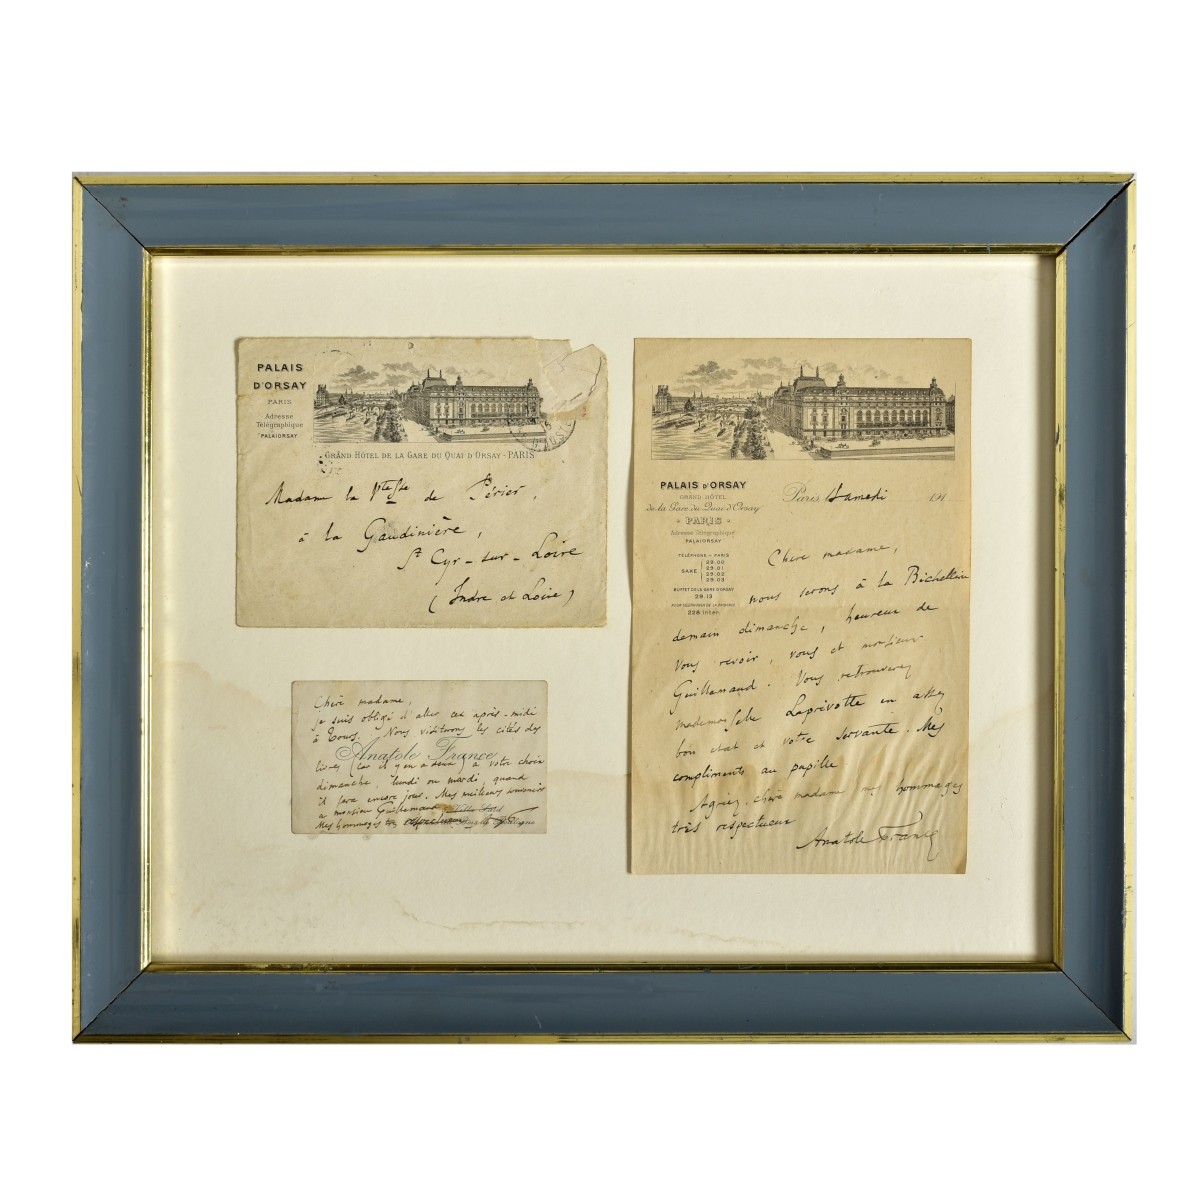 PALAIS
D'ORSAY
PARIS
Adresse
Télégraphique
PALAIORSAY
GRAND HÔTEL DE LA GARE DU QUAI D'ORSAY - PARIS
Madame la Vtesse de Périer,
à la Gaudinière,
St Cyr-sur-Loire
(Indre et Loire)
Chère madame,
je suis obligé d'aller cet après-midi
à Tours. Nous visiterons les cités des
Anatole France
livres (car il y en a deux) à votre choix
dimanche, lundi ou mardi, quand
il fera encore jour. Mes meilleurs souvenirs
à monsieur Guillemand
Mes hommages très respectueux
PALAIS D'ORSAY
GRAND HÔTEL
de la Gare du Quai d'Orsay
PARIS
Adresse Télégraphique
PALAIORSAY
TÉLÉPHONE - PARIS
SAXE
29.00
29.01
29.02
29.03
BUFFET DE LA GARE D'ORSAY
29.13
POUR TÉLÉPHONER DE LA PROVINCE
228 Inter.
Paris, Samedi 191
Chère madame,
nous serons à la Béchellerie
demain dimanche, heureux de
vous revoir, vous et monsieur
Guillemand. Vous retrouverez
mademoiselle Laprévotte en assez
bon état et votre servante. Mes
compliments au pupille
Agréez, chère madame mes hommages
très respectueux
Anatole France